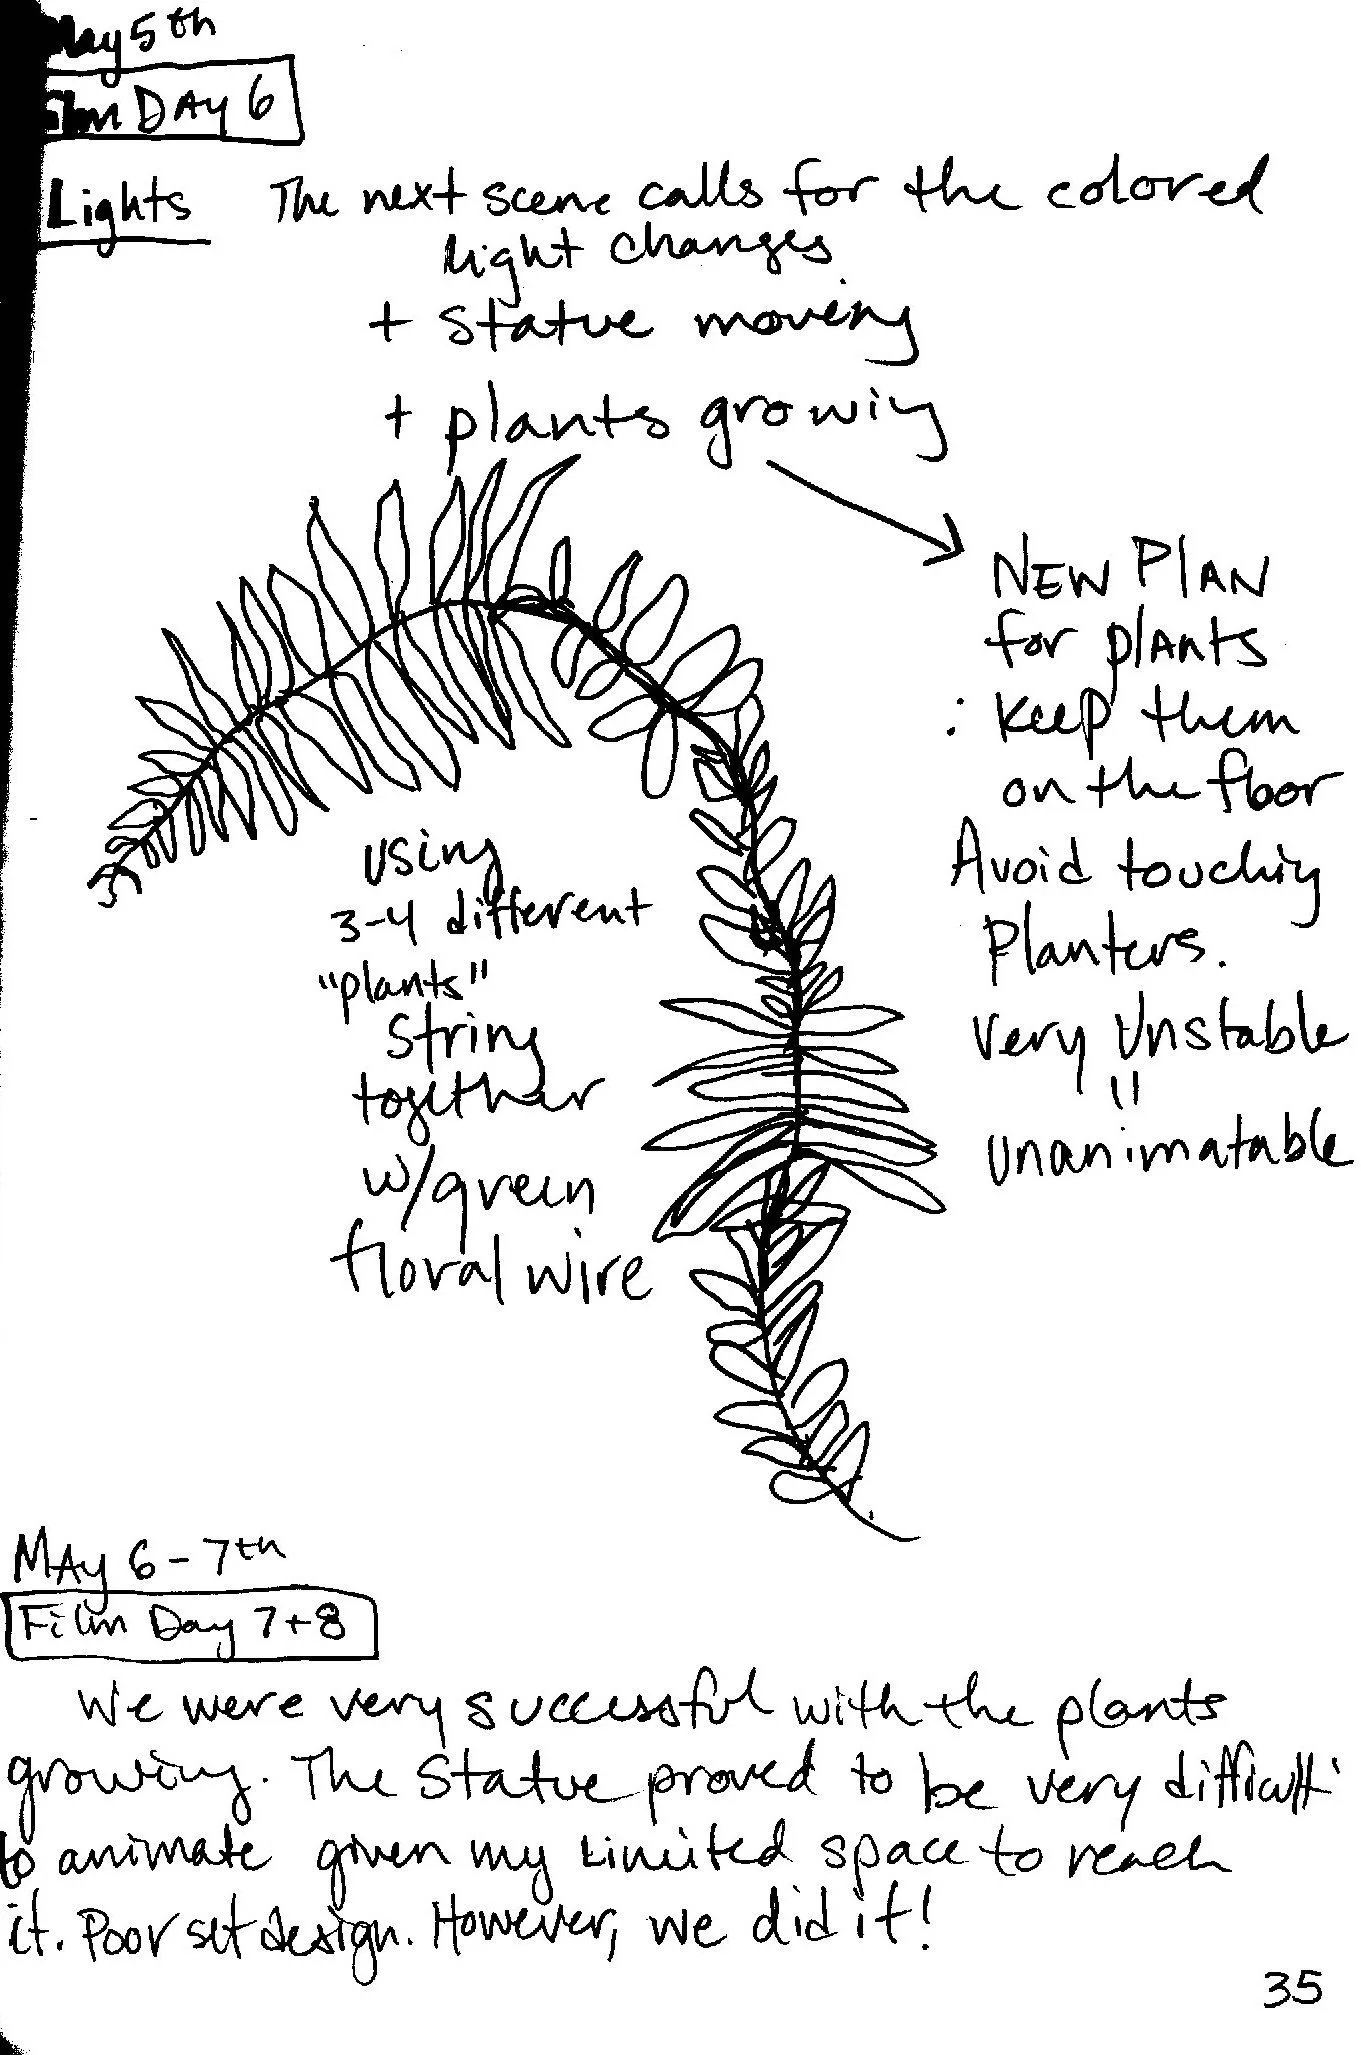 May 5th
Film DAY 6
Lights The next scene calls for the colored
light changes
+ statue moving
+ plants growing
NEW PLAN
for plants
: keep them
on the floor
Avoid touching
Planters.
Very Unstable
"
unanimatable
using
3-4 different
"plants"
string
together
w/green
floral wire
MAY 6-7th
Film Day 7+8
We were very successful with the plants
growing. The Statue proved to be very difficult
to animate given my limited space to reach
it. Poor set design. However, we did it!
35